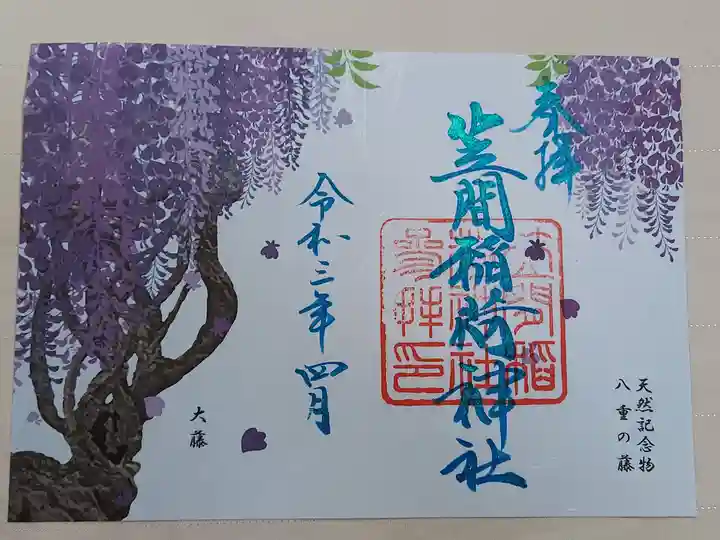 奉拝
笠間稲荷神社
笠間稲
荷神社
参拝印
天然記念物
八重の藤
令和三年四月
大藤